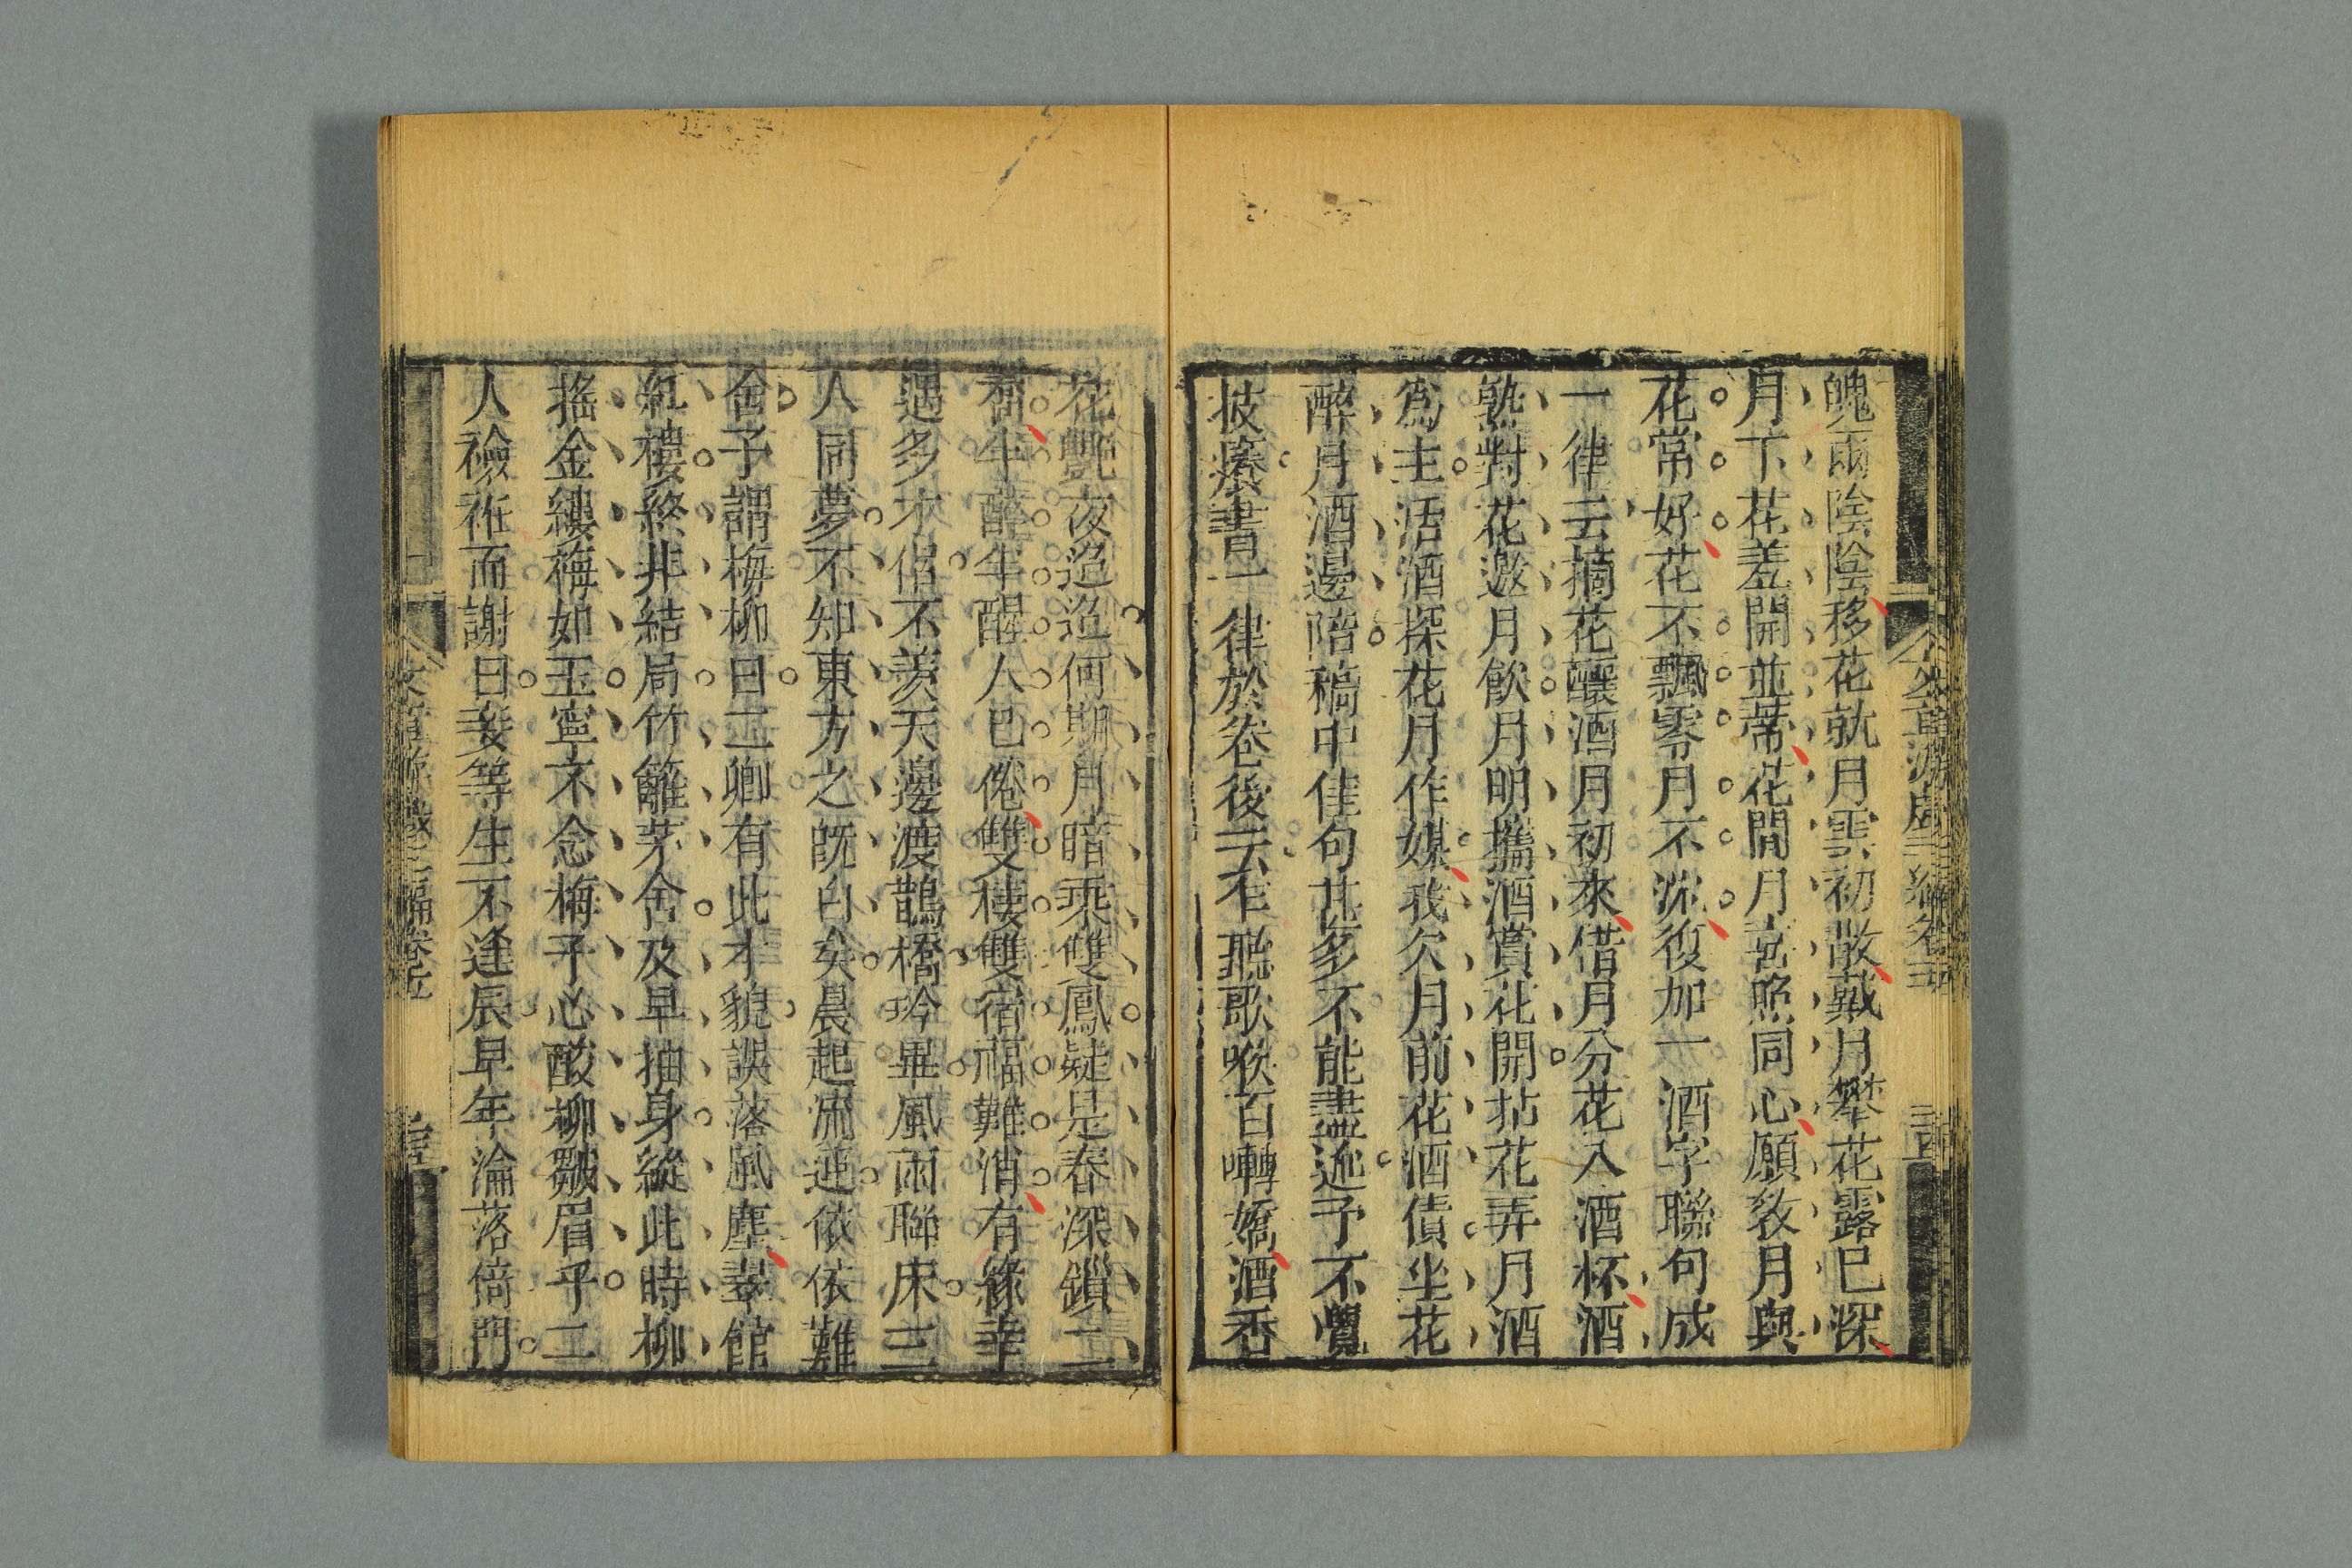 魄雨陰陰移花就月雲初散戴月攀花露已深
月下花羞開並蒂花間月喜照同心願教月與
花常好花不飄零月不沉復加一酒字聯句成
一律云摘花釀酒月初來借月分花入酒杯酒
熟對花邀月飲月明攜酒賞花開拈花弄月酒
為主活酒探花月作媒我欠月前花酒債坐花
醉月酒邊陪稿中佳句甚多不能盡述予不覺
披癢書一律於卷後云乍聽歌喉百囀嬌酒香
花艷夜迢迢何期月暗乘雙鳳疑是春深鎖二
喬半醉半醒人已倦雙棲雙宿福難消有緣幸
遇多才侶不羨天邊渡鵲橋吟畢風雨聯床三
人同夢不知東方之既白矣晨起流連依依難
舍予謂梅柳曰二卿有此才貌誤落風塵翠館
紅樓終非結局竹籬茅舍及早抽身縱此時柳
搖金縷梅如玉寧不念梅子心酸柳皺眉乎二
人襝衽而謝曰妾等生不逢辰早年淪落倚門